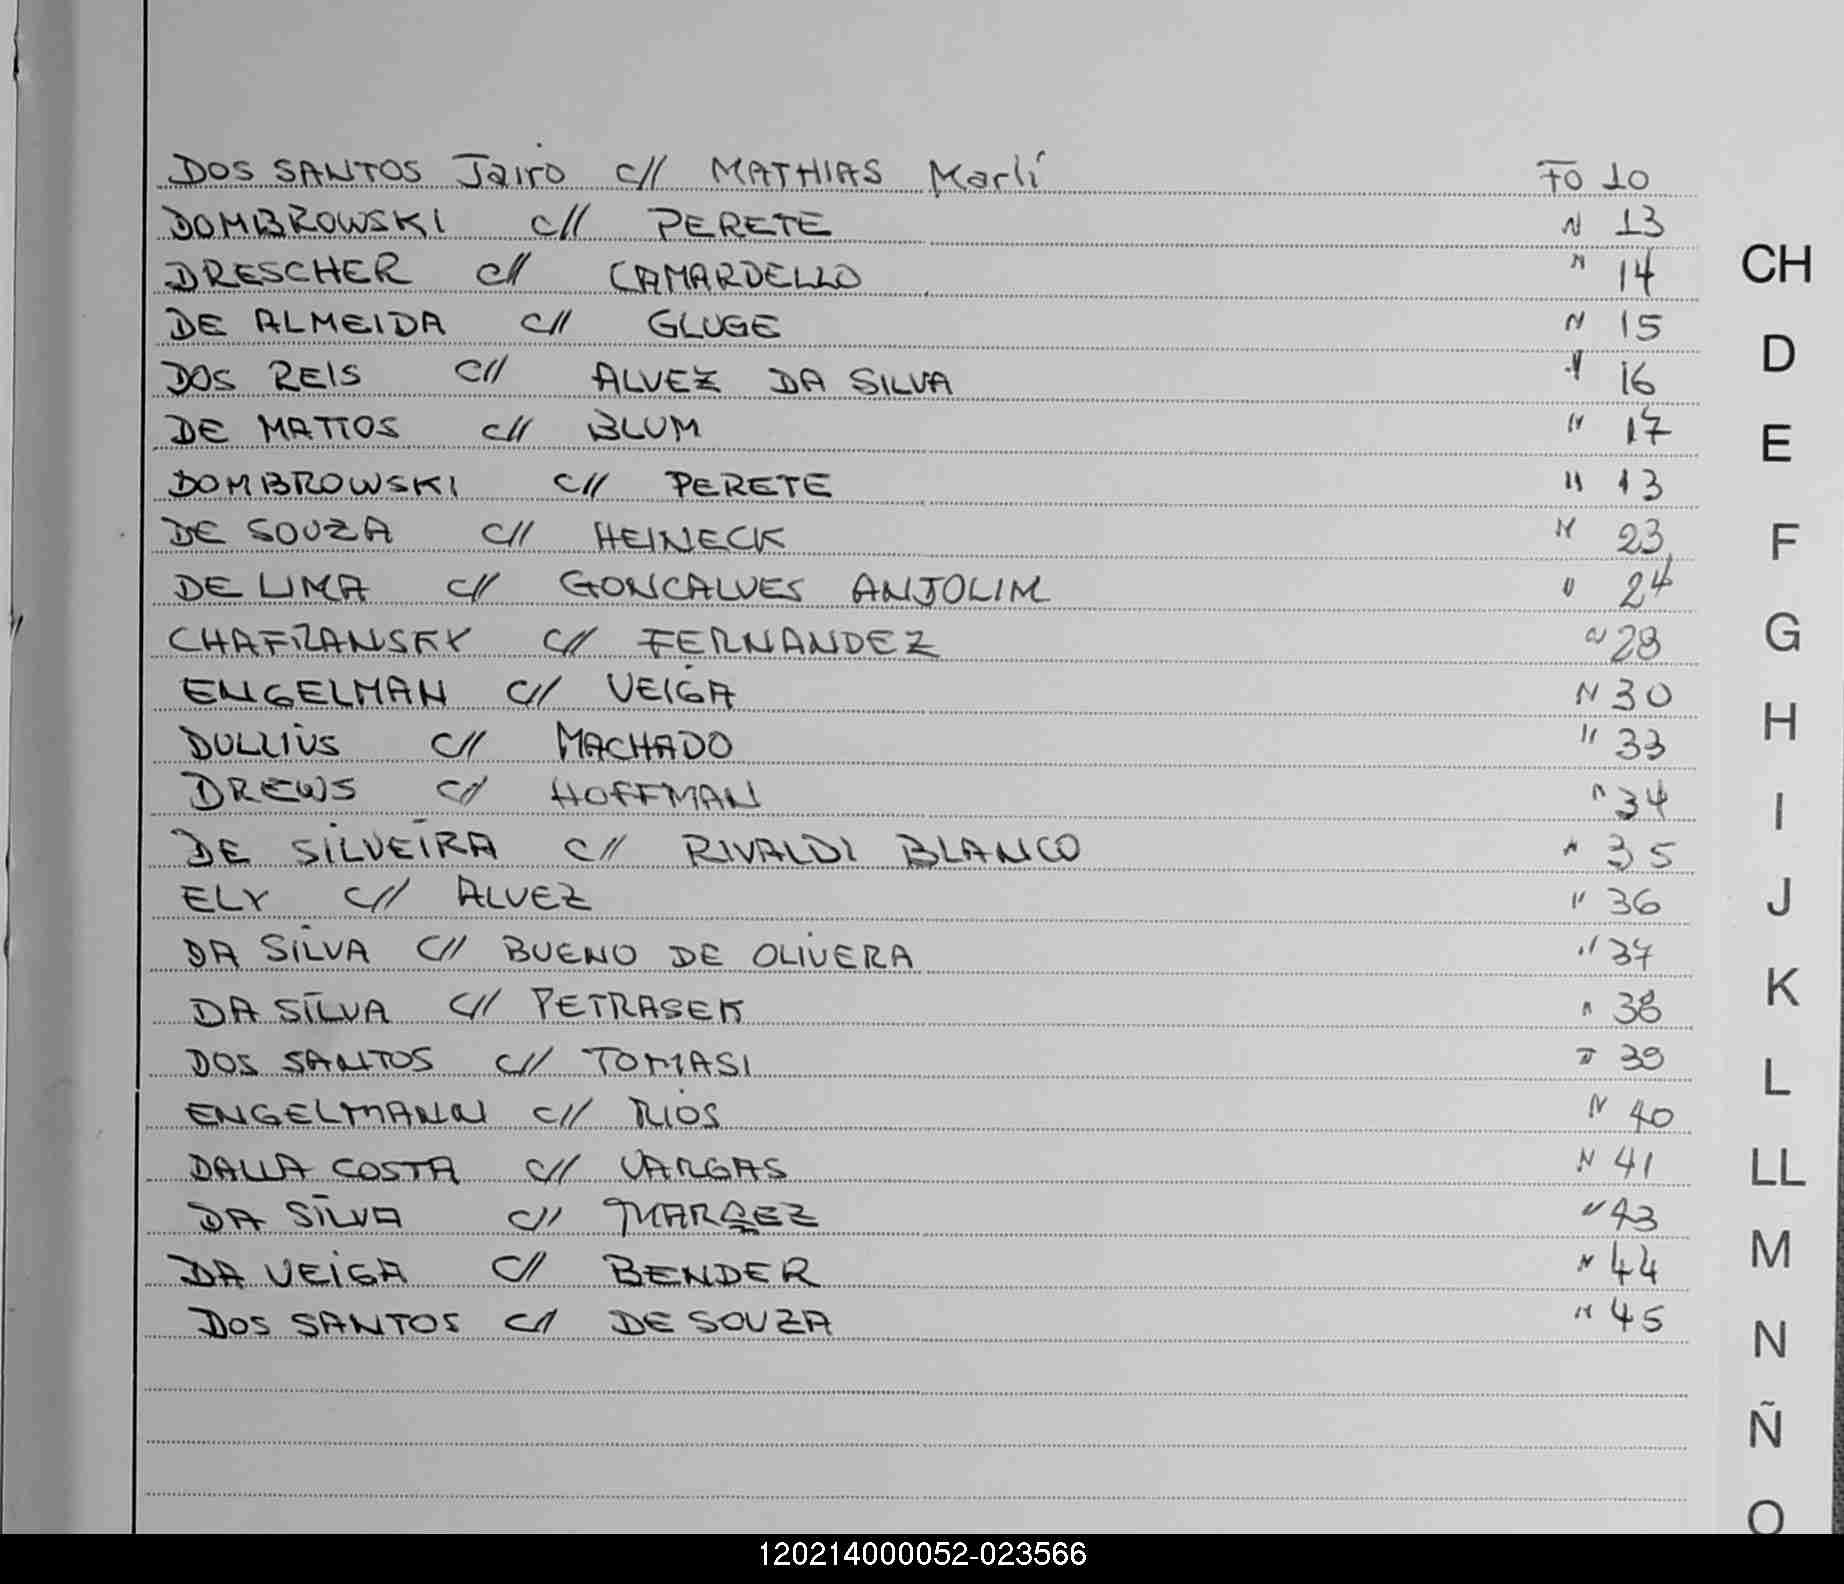 DOS SANTOS Jairo c// MATHIAS Marlí Fo 10
DOMBROWSKI c// PERETE " 13
DRESCHER c// CAMARDELLO " 14
DE ALMEIDA c// GLUGE " 15
DOS REIS c// ALVEZ DA SILVA " 16
DE MATTOS c// BLUM " 17
DOMBROWSKI c// PERETE " 13
DE SOUZA c// HEINECK " 23
DE LIMA c// GONCALVES ANJOLIM " 24
CHAFRANSKY c// FERNANDEZ " 28
ENGELMAN c// VEIGA " 30
DULLIUS c// MACHADO " 33
DREWS c// HOFFMAN " 34
DE SILVEIRA c// RIVALDI BLANCO " 35
ELY c// ALVEZ " 36
DA SILVA c// BUENO DE OLIVERA " 37
DA SILVA c// PETRASEK " 38
DOS SANTOS c// TOMASI " 39
ENGELMANN c// RIOS " 40
DALLA COSTA c// VARGAS " 41
DA SILVA c// MARQEZ " 43
DA VEIGA c// BENDER " 44
DOS SANTOS c// DE SOUZA " 45
CH
D
E
F
G
H
I
J
K
L
LL
M
N
Ñ
O
120214000052-023566